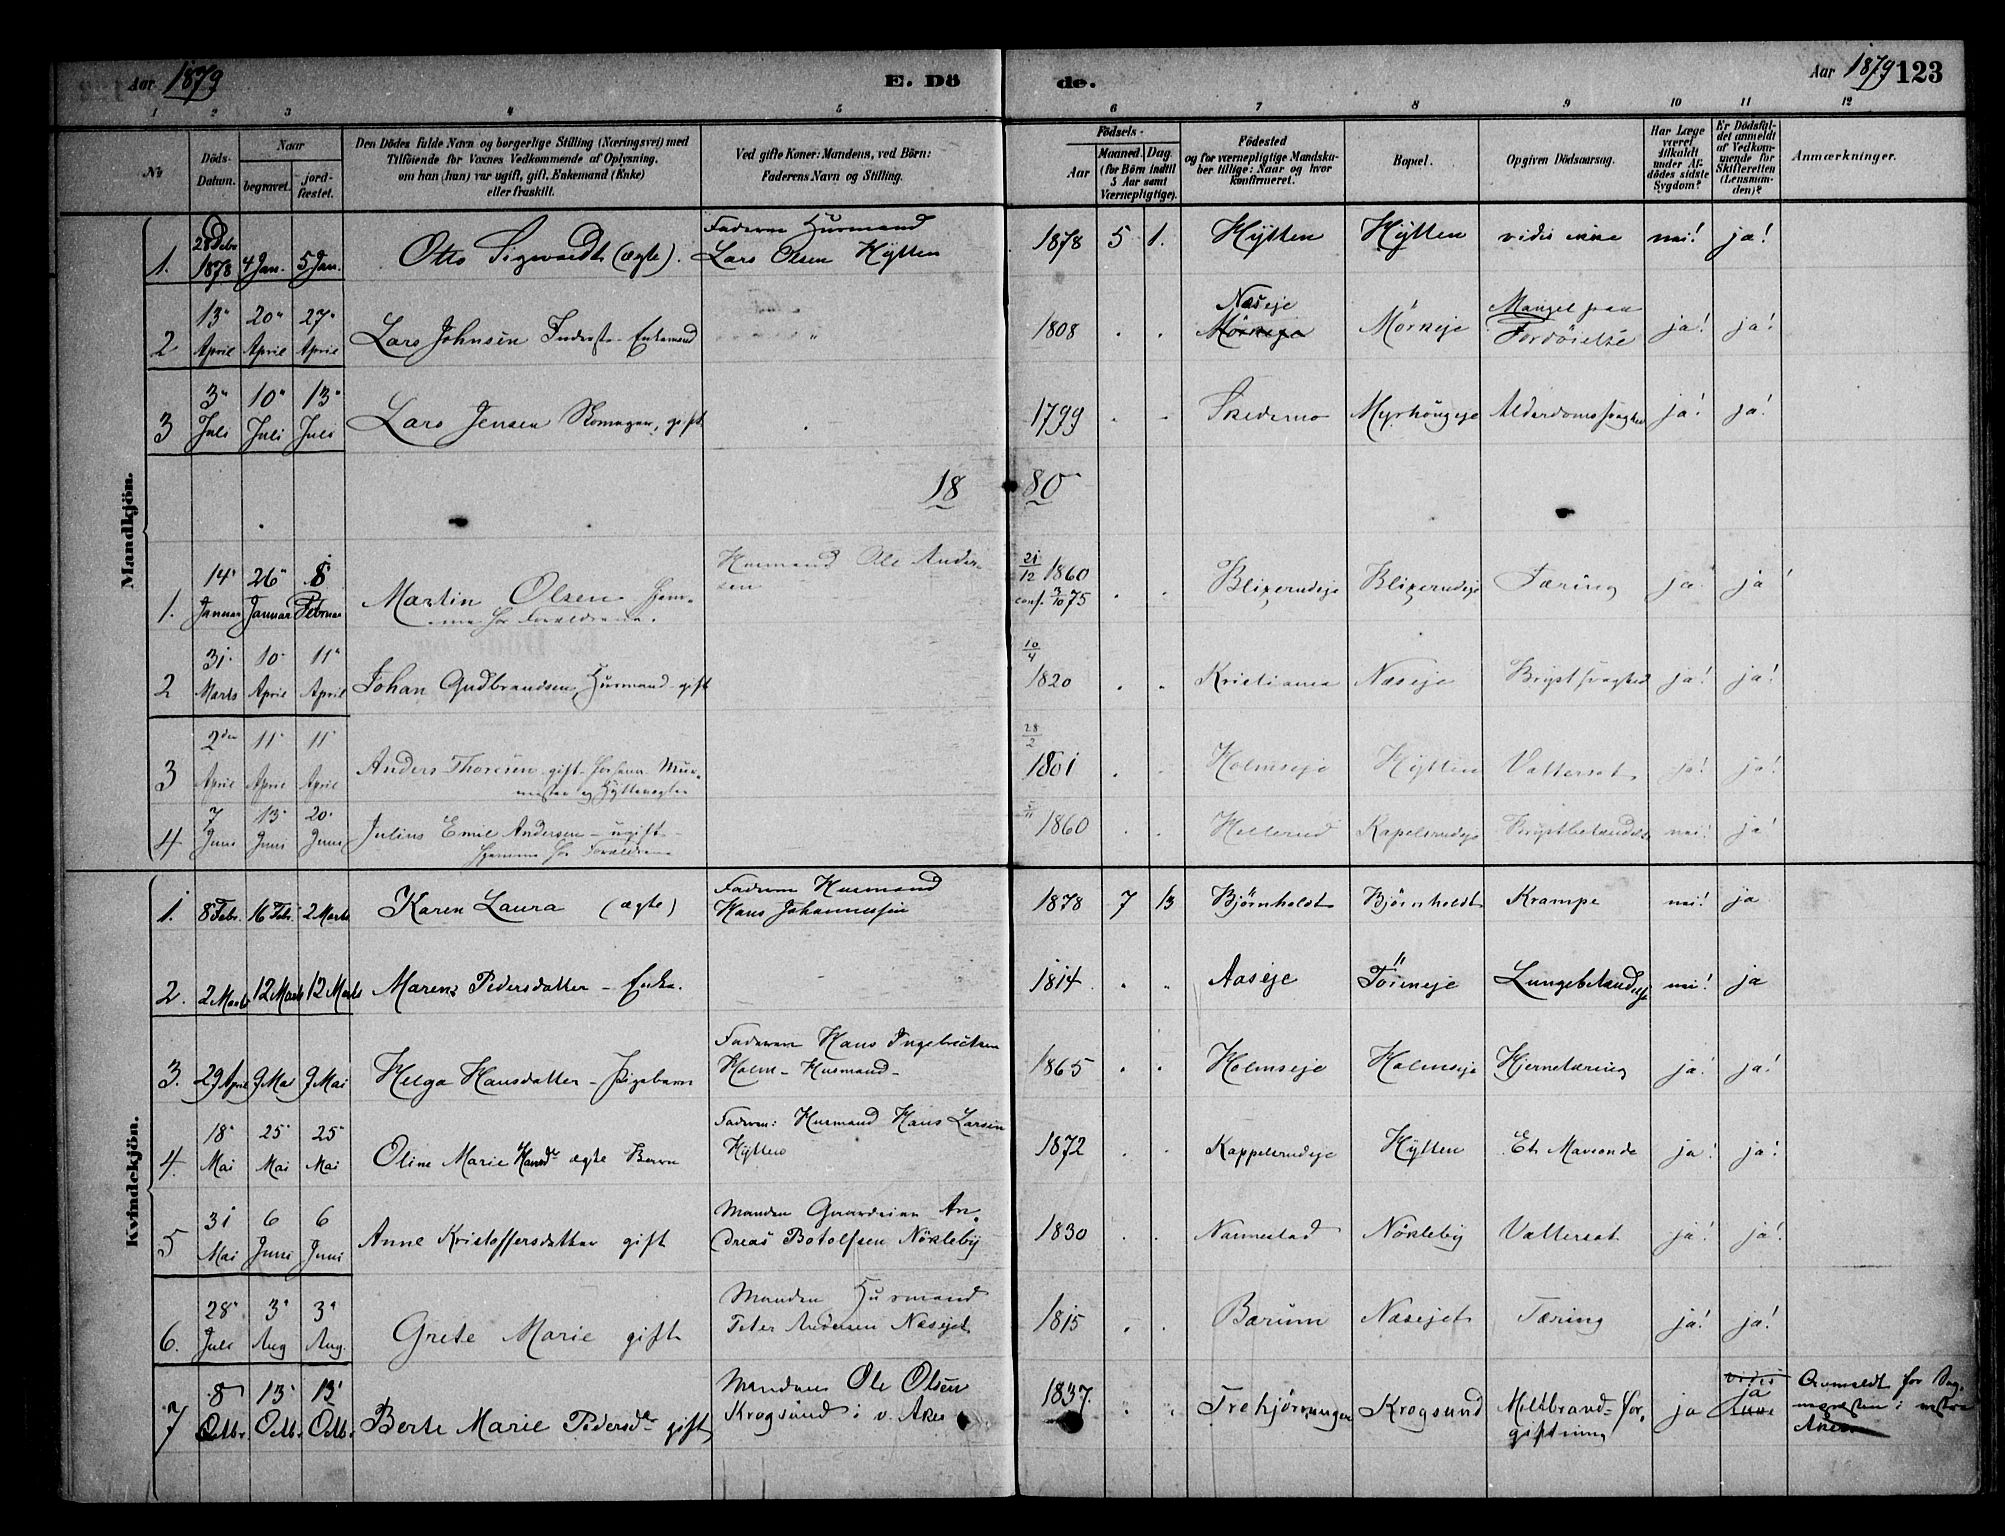 Aar 1879
E. Dö
de.
Aar 1879 123
1 2 3 4 5 6 7 8 9 10 11 12
№ Döds-Datum. Naar begravet. jord-fæstet.
Den Dödes fulde Navn og borgerlige Stilling (Næringsvei) med
Tilföiende for Voxnes Vedkommende af Oplysning,
om han (hun) var ugift, gift, Enkemand (Enke)
eller fraskilt.
Ved gifte Koner: Mandens, ved Börn:
Faderens Navn og Stilling.
Födsels-
Aar Maaned. Dag.
(for Börn indtil
5 Aar samt
Værnepligtige).
Födested
og for værnepligtige Mandska-
ber tillige: Naar og hvor
konfirmeret.
Bopæl.
Opgiven Dödsaarsag.
Har Læge
været
tilkaldt
under Af-
dödes sidste
Sygdom?
Er Dödsfal-
det anmeldt
af Vedkom-
mende for
Skifteretten
(Lensman-
den)?
Anmærkninger.
Mandkjön.
1. 28 Debr 1878 4 Jan. 5 Jan. Otto Sigwardt (ægte). Faderen Husmand Lars Olsen Hytten 1878 5 1. Hytten Hytten vides ikke nei! ja!
2 13 April 20 April 27 April Lars Johnsen Inderst - Enkemand " 1808 Næseje Mörkeje Mörkeje Mangel paa Fordöielse ja! ja!
3 3 Juli 10 Juli 13 Juli Lars Jensen Komagen, gift 1799 Skedsmo Myrhöugeje Alderdomssvaghed ja! ja!
18 80
1. 14 Januar 26 Januar 8 Februar Martin Olsen hjemme hos Forældrene. Husmand Ole Andersen 21/12 1860 conf. 3/10 75 Blixerudeje Blixerudeje Tæring ja ja
2 31 Marts 10 April 11 April Johan Gudbrandsen, Husmand gift 10/4 1820 Kristiania Næseje Brystsvaghed ja! ja!
3 2den April 11 April 11 April Anders Thoresen gift - forhenv Murmester og Hyttefogder 28/2 1801 Holmseje Hytten Vattersot ja! ja!
4 7 Juni 13 Juni 20 Juni Julius Emil Andersen - ugift - hjemme hos Forældrene 1860 Hellerud Kapelerudeje Brystbetændelse nei! ja!
Kvindekjön.
1. 8 Febr. 16 Febr 2 Marts Karen Laura (ægte) Faderen Husmand Hans Johannessen 1878 7 13 Bjørnholdt Björnholdt Krampe nei! ja
2. 2 Marts 12 Marts 12 Marts Maren Pedersdatter - Enke. 1814 Aaseje Töieneje Lungebetændelse nei! ja
3. 29 April 9 Mai 9 Mai Helga Hansdatter - Pigebarn Faderen Hans Ingebretsen Holm - Husmand - 1865 Holmseje Holmseje Hjernetæring ja! ja!
4. 18 Mai 25 Mai 25 Mai Oline Marie Hansdr ægte Barn Faderen: Husmand Hans Larsen Hytten 1872 Kappelerudeje Hytten Et Maveonde ja! ja!
5 31 Mai 6 Juni 6 Juni Anne Kristoffersdatter gift Manden Gaardeier Andreas Botolfsen Nökleby 1830 Nannestad Nökleby Vattersot ja! ja!
6. 28 Juli 3 Aug 3 Aug. Grete Marie gift Manden Husmand Peter Andersen Næsejet 1815 Bærum Næsejet Tæring ja! ja!
7 8 Octbr 13 Octbr 13 Octbr Berte Marie Pedersdr gift Manden Ole Olsen Krogsund i v. Aker 1837. Trehjørningen Krogsund Miltbrand-forgiftning ja vides ja ikke Anmeldt for i vestre Aker